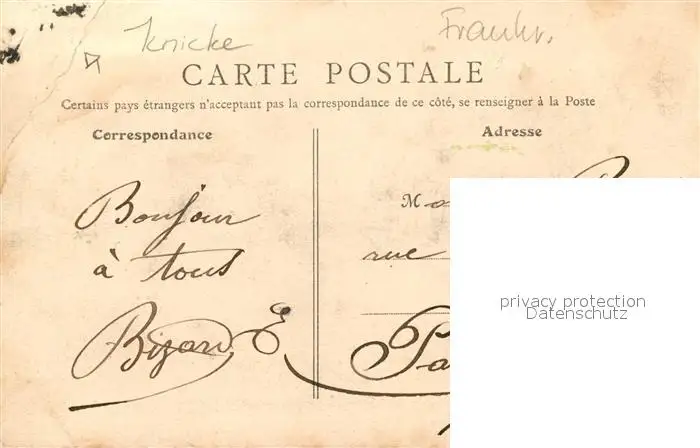 Knicke Frankr.
CARTE POSTALE
Certains pays étrangers n'acceptant pas la correspondance de ce côté, se renseigner à la Poste
Correspondance
Adresse
Bonjour
à tous
Bizard E
M
rue
Pa
privacy protection
Datenschutz